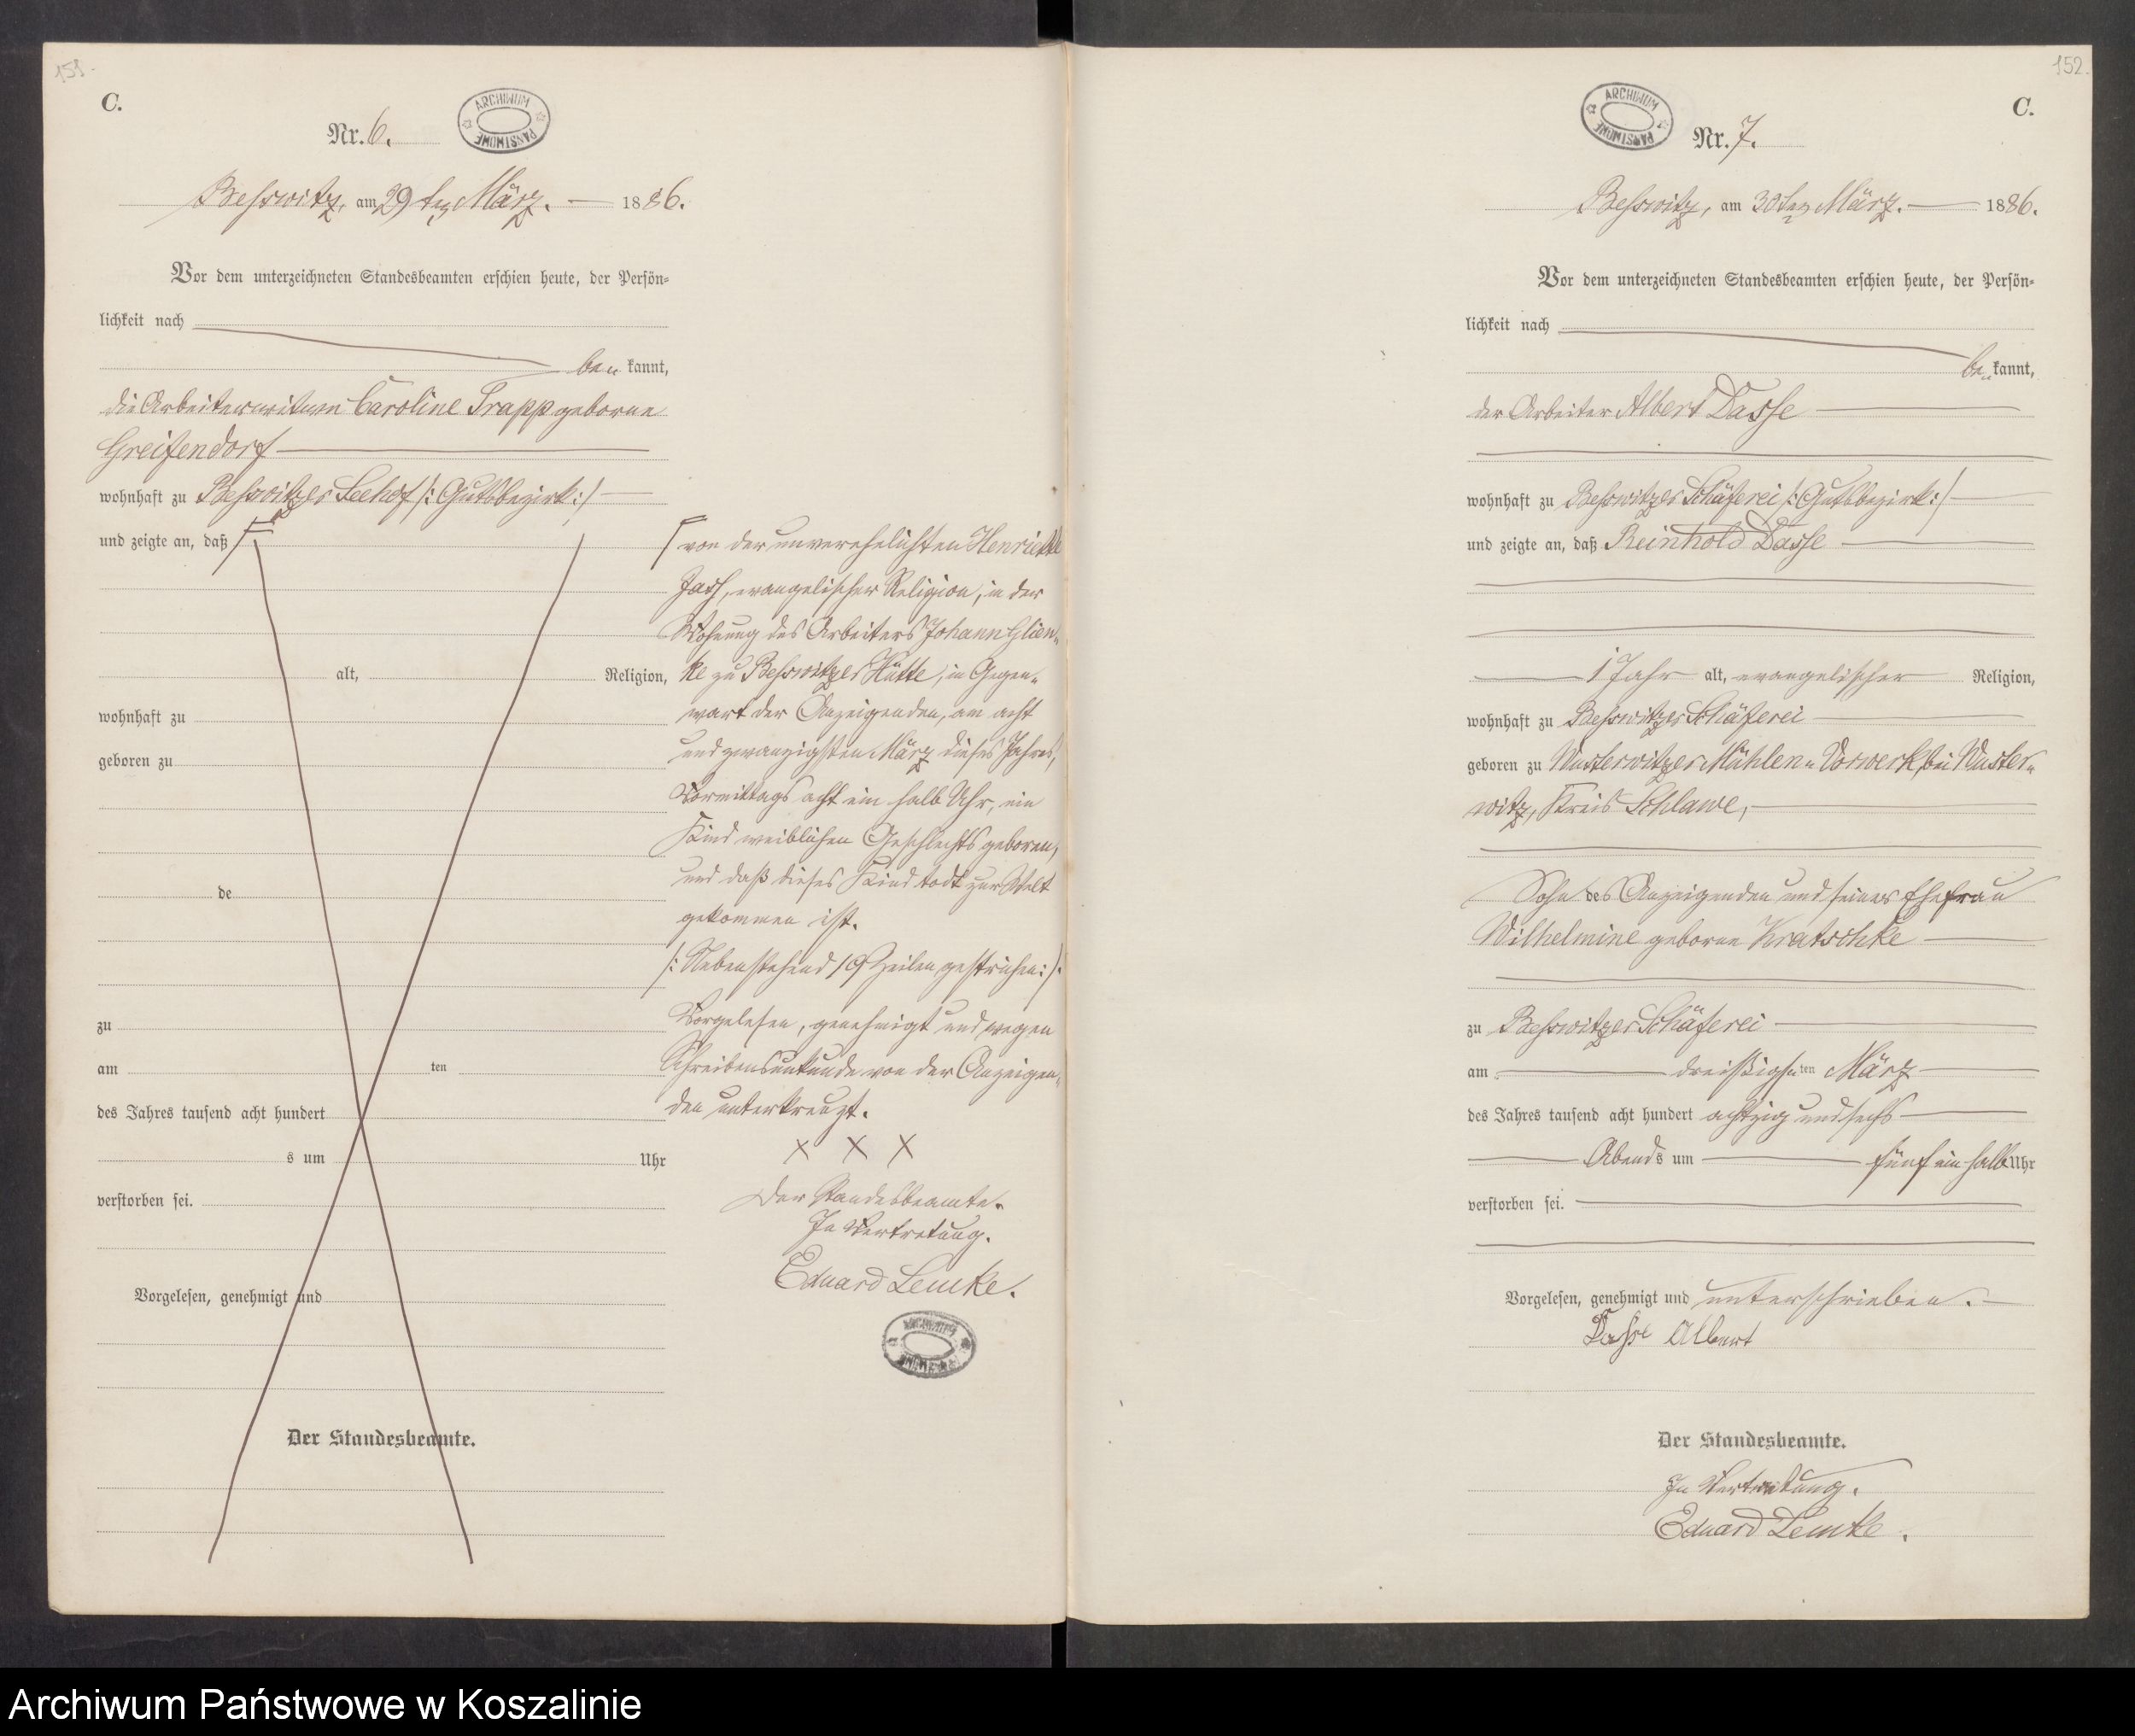 151.
C.
Nr. 6.
ARCHIWUM PAŃSTWOWE
Besswitz, am 29 ten März. 1886.
Vor dem unterzeichneten Standesbeamten erschien heute, der Persön-
lichkeit nach
be kannt,
die Arbeiterwittwe Caroline Trapp geborne
Greifendorf
wohnhaft zu Besswitzer Seehof /: Gutsbezirk :/
und zeigte an, daß
alt, Religion,
wohnhaft zu
geboren zu
de
zu
am ten
des Jahres tausend acht hundert
s um Uhr
verstorben sei.
Vorgelesen, genehmigt und
Der Standesbeamte.
von der unverehelichten Henriette
Jass, evangelischer Religion, in der
Wohnung des Arbeiters Johann Glien-
ke zu Besswitzer Hütte, in Gegen-
wart der Anzeigenden, am acht
und zwanzigsten März dieses Jahres,
Vormittags acht ein halb Uhr, ein
Kind weiblichen Geschlechts geboren,
und daß dieses Kind todt zur Welt
gekommen ist.
/: Nebenstehend 19 Zeilen gestrichen :/.
Vorgelesen, genehmigt und wegen
Schreibensunkunde von der Anzeigen-
den unterkreuzt.
X X X
Der Standesbeamte.
In Vertretung.
Eduard Lemke.
ARCHIWUM PAŃSTWOWE
152.
C.
ARCHIWUM PAŃSTWOWE
Nr. 7.
Besswitz, am 30 ten März. 1886.
Vor dem unterzeichneten Standesbeamten erschien heute, der Persön-
lichkeit nach
be kannt,
der Arbeiter Albert Dasse
wohnhaft zu Besswitzer Schäferei /: Gutsbezirk :/
und zeigte an, daß Reinhold Dasse
1 Jahr alt, evangelischer Religion,
wohnhaft zu Besswitzer Schäferei
geboren zu Wusterwitzer Mühlen-Vorwerk, bei Wuster-
witz, Kreis Schlawe,
Sohn des Anzeigenden und seiner Ehefrau
Wilhelmine geborne Kratschke
zu Besswitzer Schäferei
am dreißigsten März
des Jahres tausend acht hundert achtzig und sechs
Abends um fünf ein halb Uhr
verstorben sei.
Vorgelesen, genehmigt und unterschrieben.
Dasse Albert
Der Standesbeamte.
In Vertretung.
Eduard Lemke.
Archiwum Państwowe w Koszalinie